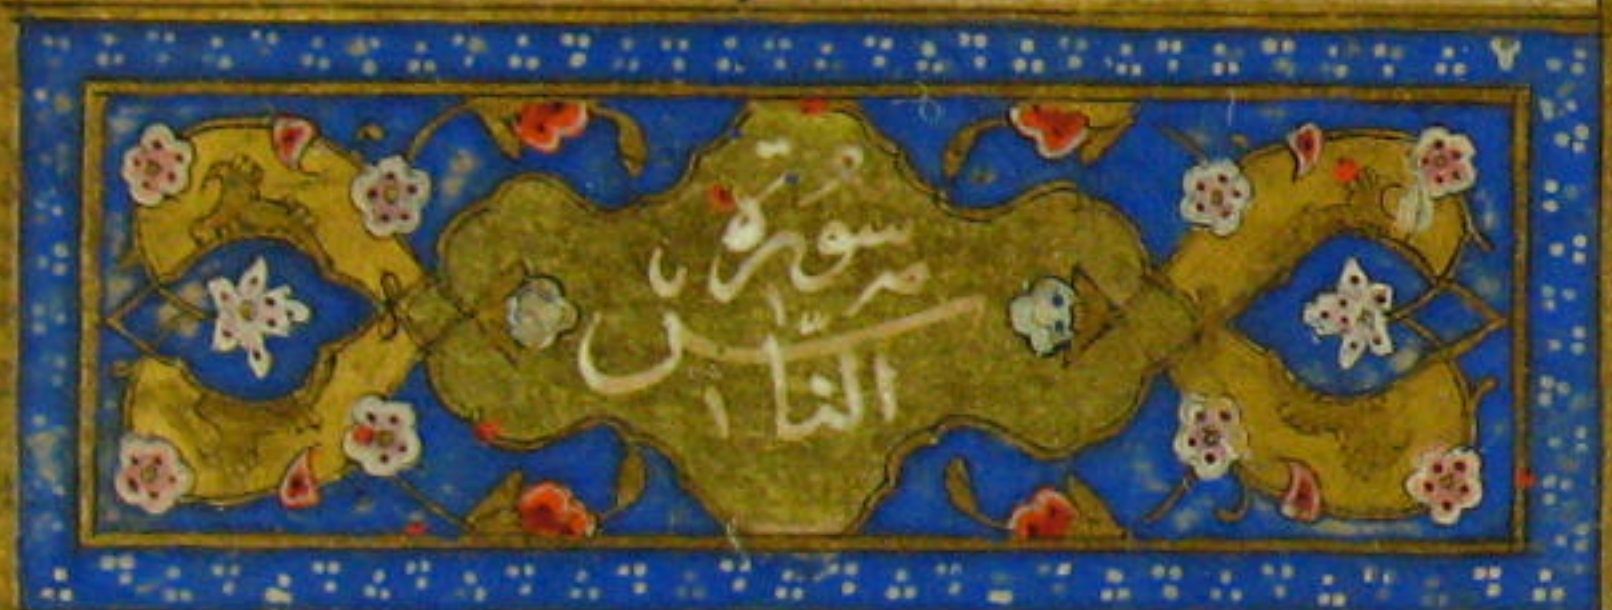 سُورَة
النَّاس